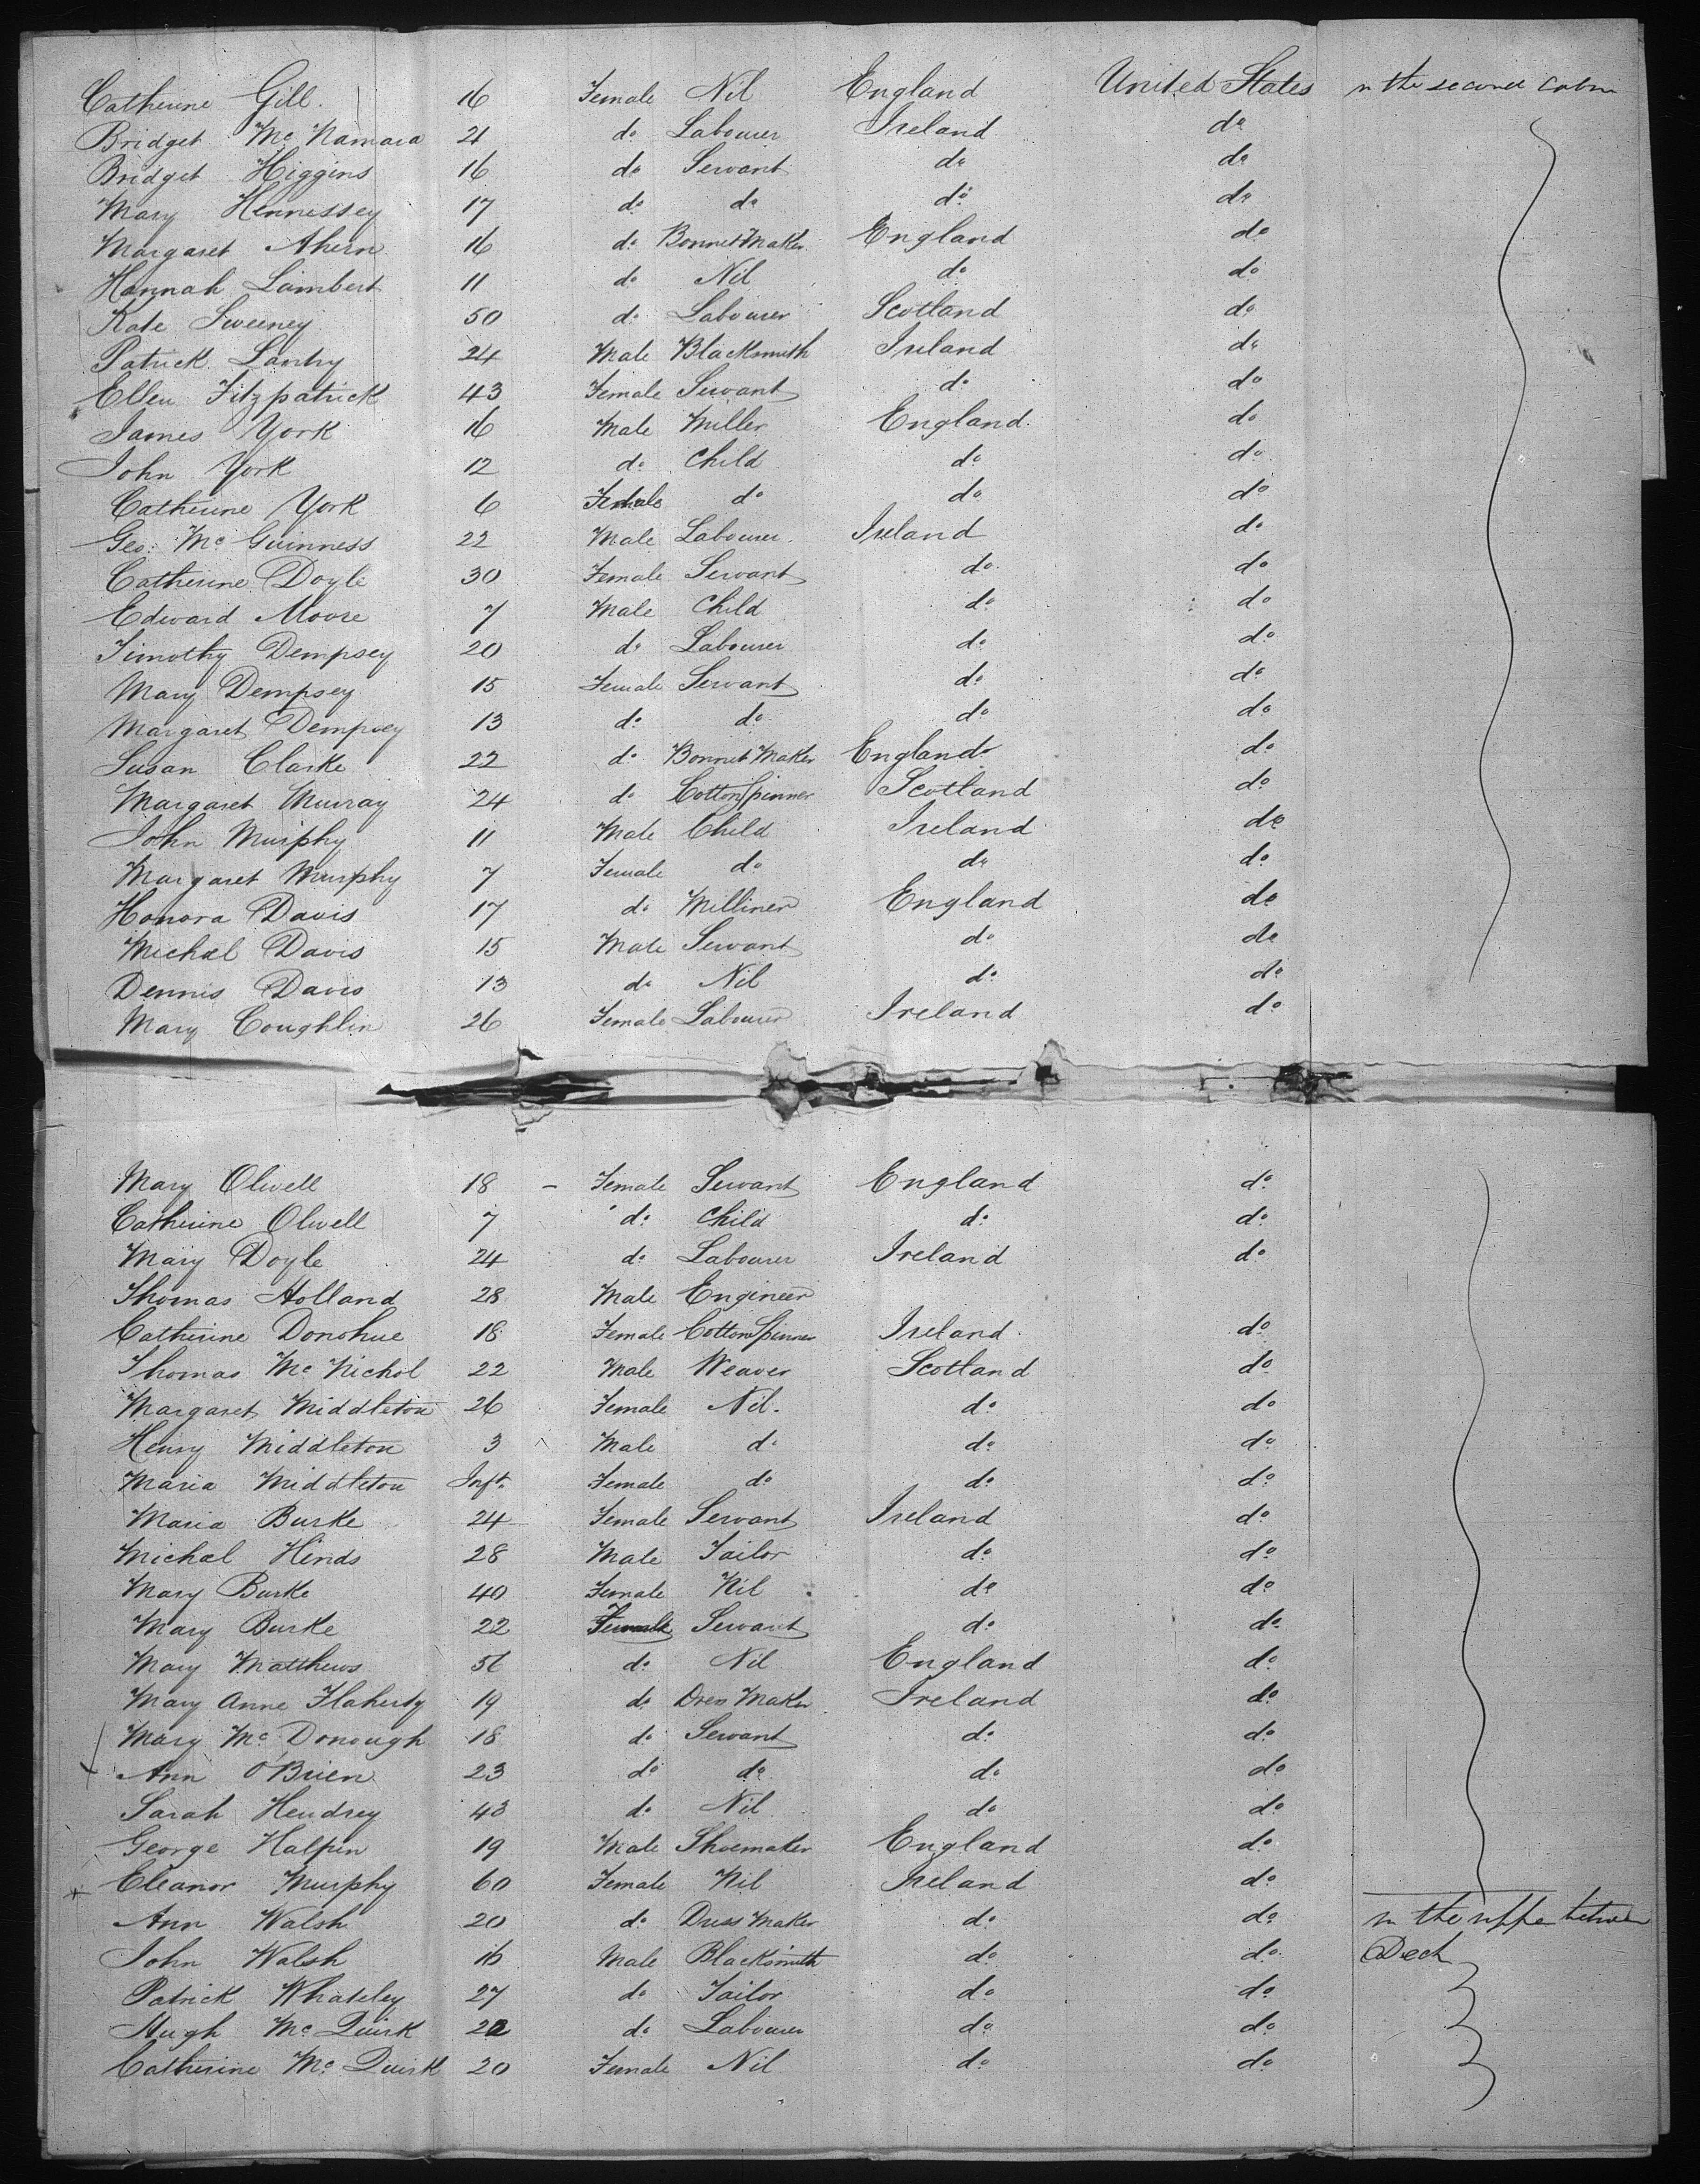 Catherine Gill. 16 Female Nil England United States n the second Cabin
Bridget Mc Namara 21 do Labourer Ireland do
Bridget Higgins 16 do Servant do do
Mary Hennessey 17 do do do do
Margaret Ahern 16 do Bonnet Maker England do
Hannah Lambert 11 do Nil do do
Kate Sweeney 50 do Labourer Scotland do
Patrick Lanky 24 Male Blacksmith Ireland do
Ellen Fitzpatrick 43 Female Servant do do
James York 16 Male Miller England. do
John York 12 do Child do do
Catherine York 6 Female do do do
Geo: Mc Guinness 22 Male Labourer. Ireland do
Catherine Doyle 30 Female Servant do do
Edward Moore 7 Male Child do do
Timothy Dempsey 20 do Labourer do do
Mary Dempsey 15 Female Servant do do
Margaret Dempsey 13 do do do do
Susan Clarke 22 do Bonnet Maker England do
Margaret Murray 24 do Cotton Spinner Scotland do
John Murphy 11 Male Child Ireland do
Margaret Murphy 7 Female do do do
Honora Davis 17 do Milliner England do
Michael Davis 15 Male Servant do do
Dennis Davis 13 do Nil do do
Mary Coughlin 26 Female Labourer Ireland do
Mary Olwell 18 – Female Servant England do
Catherine Olwell 7 do Child do do
Mary Doyle 24 do Labourer Ireland do
Thomas Holland 28 Male Engineer
Catherine Donohue 18 Female Cotton Spinner Ireland do
Thomas Mc Nichol 22 Male Weaver Scotland do
Margaret Middleton 26 Female Nil. do do
Henry Middleton 3 Male do do do
Maria Middleton Inft. Female do do do
Maria Burke 24 Female Servant Ireland do
Michal Hinds 28 Male Tailor do do
Mary Burke 40 Female Nil do do
Mary Burke 22 Female Servant do do
Mary Matthews 56 do Nil England do
Mary Anne Flaherty 19 do Dress Maker Ireland do
Mary Mc Donough 18 do Servant do do
Ann O'Brien 23 do do do do
Sarah Hendrey 43 do Nil do do
George Halpin 19 Male Shoemaker England do
Eleanor Murphy 60 Female Nil Ireland do
Ann Walsh 20 do Dress Maker do do in the upper between
John Walsh 16 Male Blacksmith do do Deck
Patrick Whateley 27 do Tailor do do
Hugh Mc Quirk 22 do Labourer do do
Catherine Mc Quirk 20 Female Nil do do